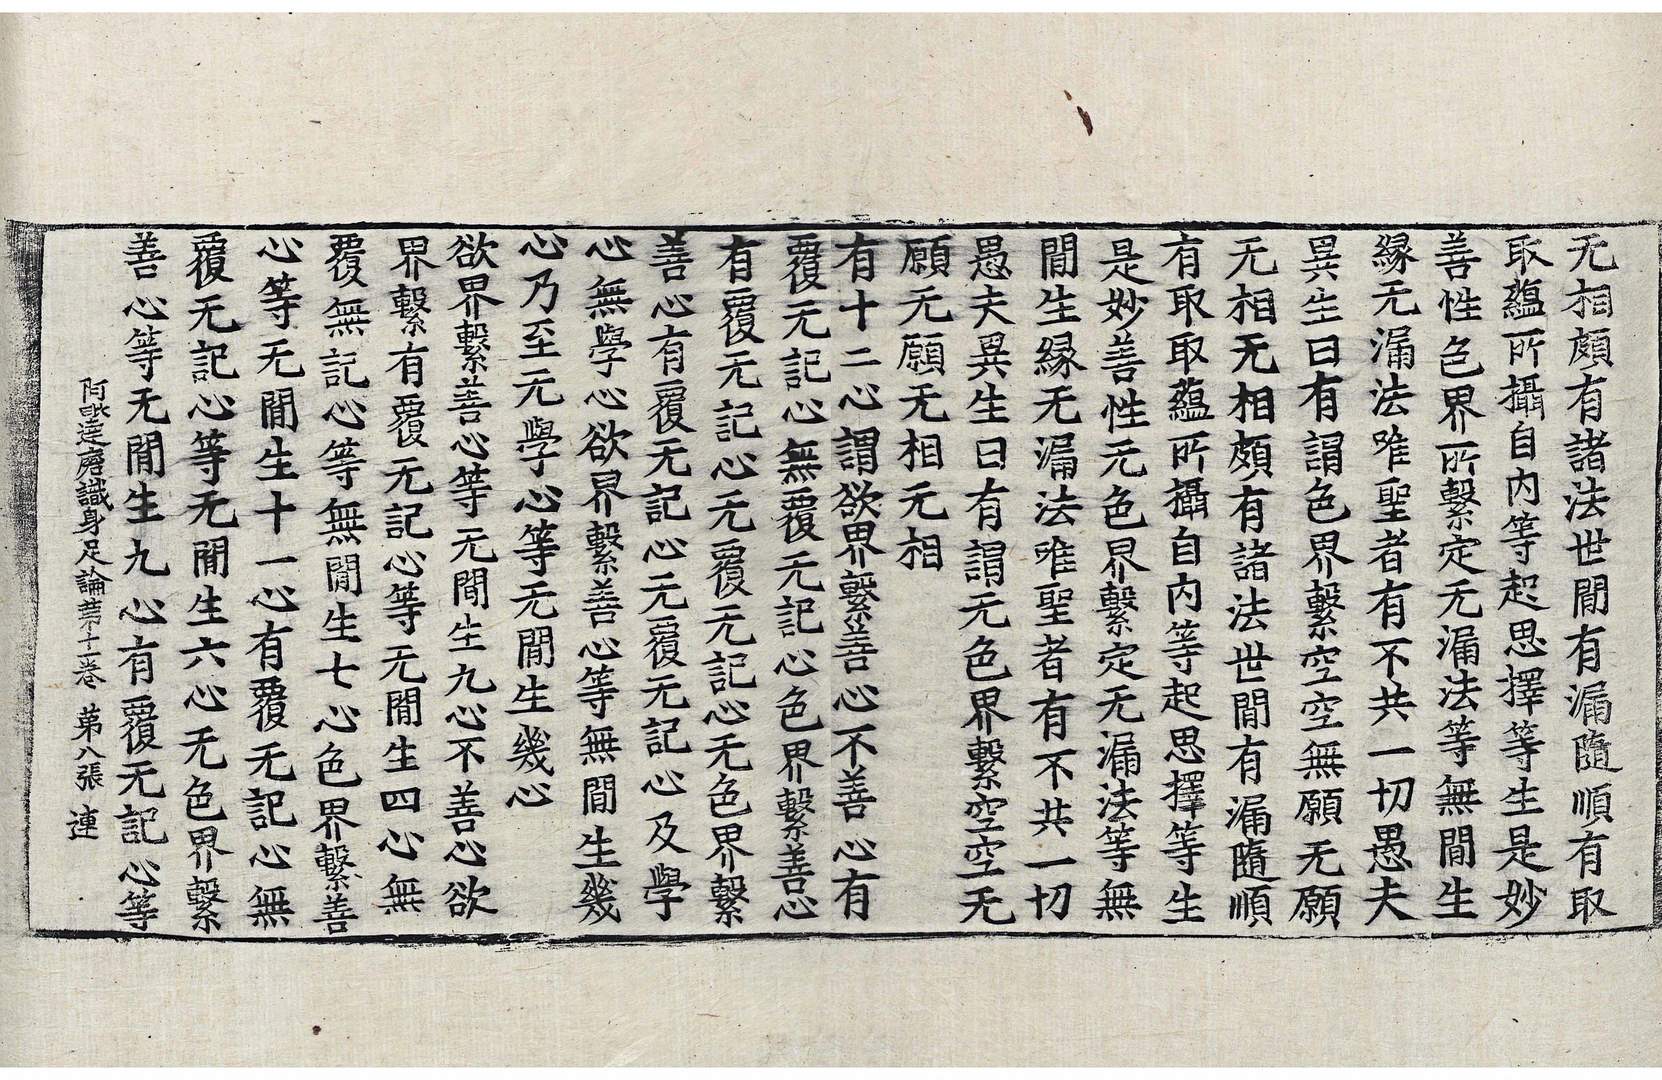 无相頗有諸法世間有漏隨順有取
取蘊所攝自内等起思擇等生是妙
善性色界所繫定无漏法等無間生
緣无漏法唯聖者有不共一切愚夫
異生曰有謂色界繫空空無願无願
无相无相頗有諸法世間有漏隨順
有取取蘊所攝自内等起思擇等生
是妙善性无色界繫定无漏法等無
間生緣无漏法唯聖者有不共一切
愚夫異生曰有謂无色界繫空空无
願无願无相无相
有十二心謂欲界繫善心不善心有
覆无記心無覆无記心色界繫善心
有覆无記心无覆无記心无色界繫
善心有覆无記心无覆无記心及學
心無學心欲界繫善心等無間生幾
心乃至无學心等无間生幾心
欲界繫善心等无間生九心不善心欲
界繫有覆无記心等无間生四心無
覆無記心等無間生七心色界繫善
心等无間生十一心有覆无記心無
覆无記心等无間生六心无色界繫
善心等无間生九心有覆无記心等
阿毗達磨識身足論苐十一卷 苐八張 連